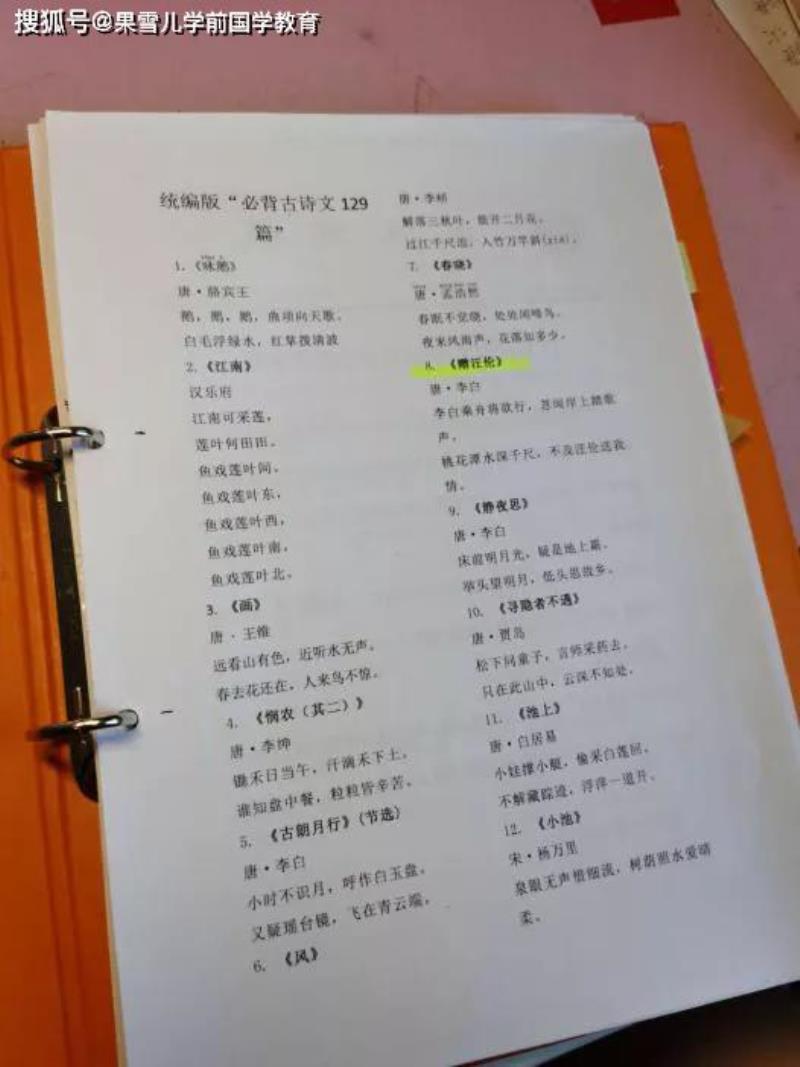 搜狐号@果雪儿学前国学教育
统编版“必背古诗文129
篇”
1. 《咏鹅》
唐·骆宾王
鹅，鹅，鹅，曲项向天歌。
白毛浮绿水，红掌拨清波
2. 《江南》
汉乐府
江南可采莲，
莲叶何田田。
鱼戏莲叶间。
鱼戏莲叶东，
鱼戏莲叶西，
鱼戏莲叶南，
鱼戏莲叶北。
3. 《画》
唐．王维
远看山有色，近听水无声。
春去花还在，人来鸟不惊。
4. 《悯农（其二）》
唐·李绅
锄禾日当午，汗滴禾下土。
谁知盘中餐，粒粒皆辛苦。
5. 《古朗月行》(节选)
唐·李白
小时不识月，呼作白玉盘。
又疑瑶台镜，飞在青云端。
6. 《风》
唐·李峤
解落三秋叶，能开二月花。
过江千尺浪，入竹万竿斜(xiá)。
7. 《春晓》
唐·孟浩然
春眠不觉晓，处处闻啼鸟。
夜来风雨声，花落知多少。
8. 《赠汪伦》
唐·李白
李白乘舟将欲行，忽闻岸上踏歌
声。
桃花潭水深千尺，不及汪伦送我
情。
9. 《静夜思》
唐·李白
床前明月光，疑是地上霜。
举头望明月，低头思故乡。
10. 《寻隐者不遇》
唐·贾岛
松下问童子，言师采药去。
只在此山中，云深不知处。
11. 《池上》
唐·白居易
小娃撑小艇，偷采白莲回。
不解藏踪迹，浮萍一道开。
12. 《小池》
宋·杨万里
泉眼无声惜细流，树荫照水爱晴
柔。